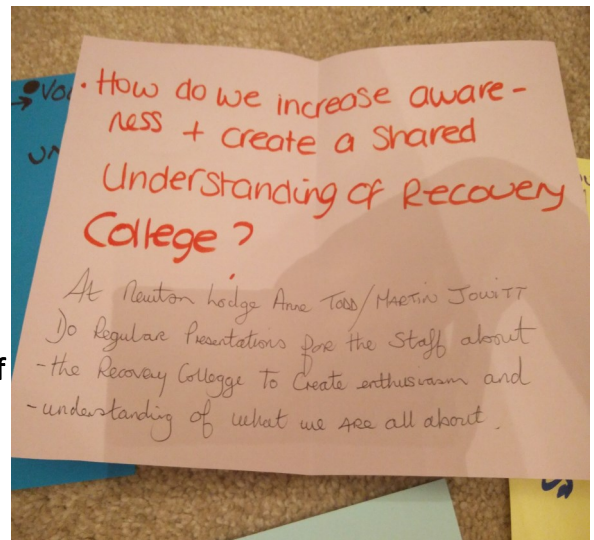 • How do we increase aware-
ness + create a Shared
Understanding of Recovery
College?
At Newton Lodge Anne Todd/Martin Jowitt
Do Regular Presentations for the Staff about
-the Recovery Collegge To Create enthusiasm and
-understanding of what we are all about.
f